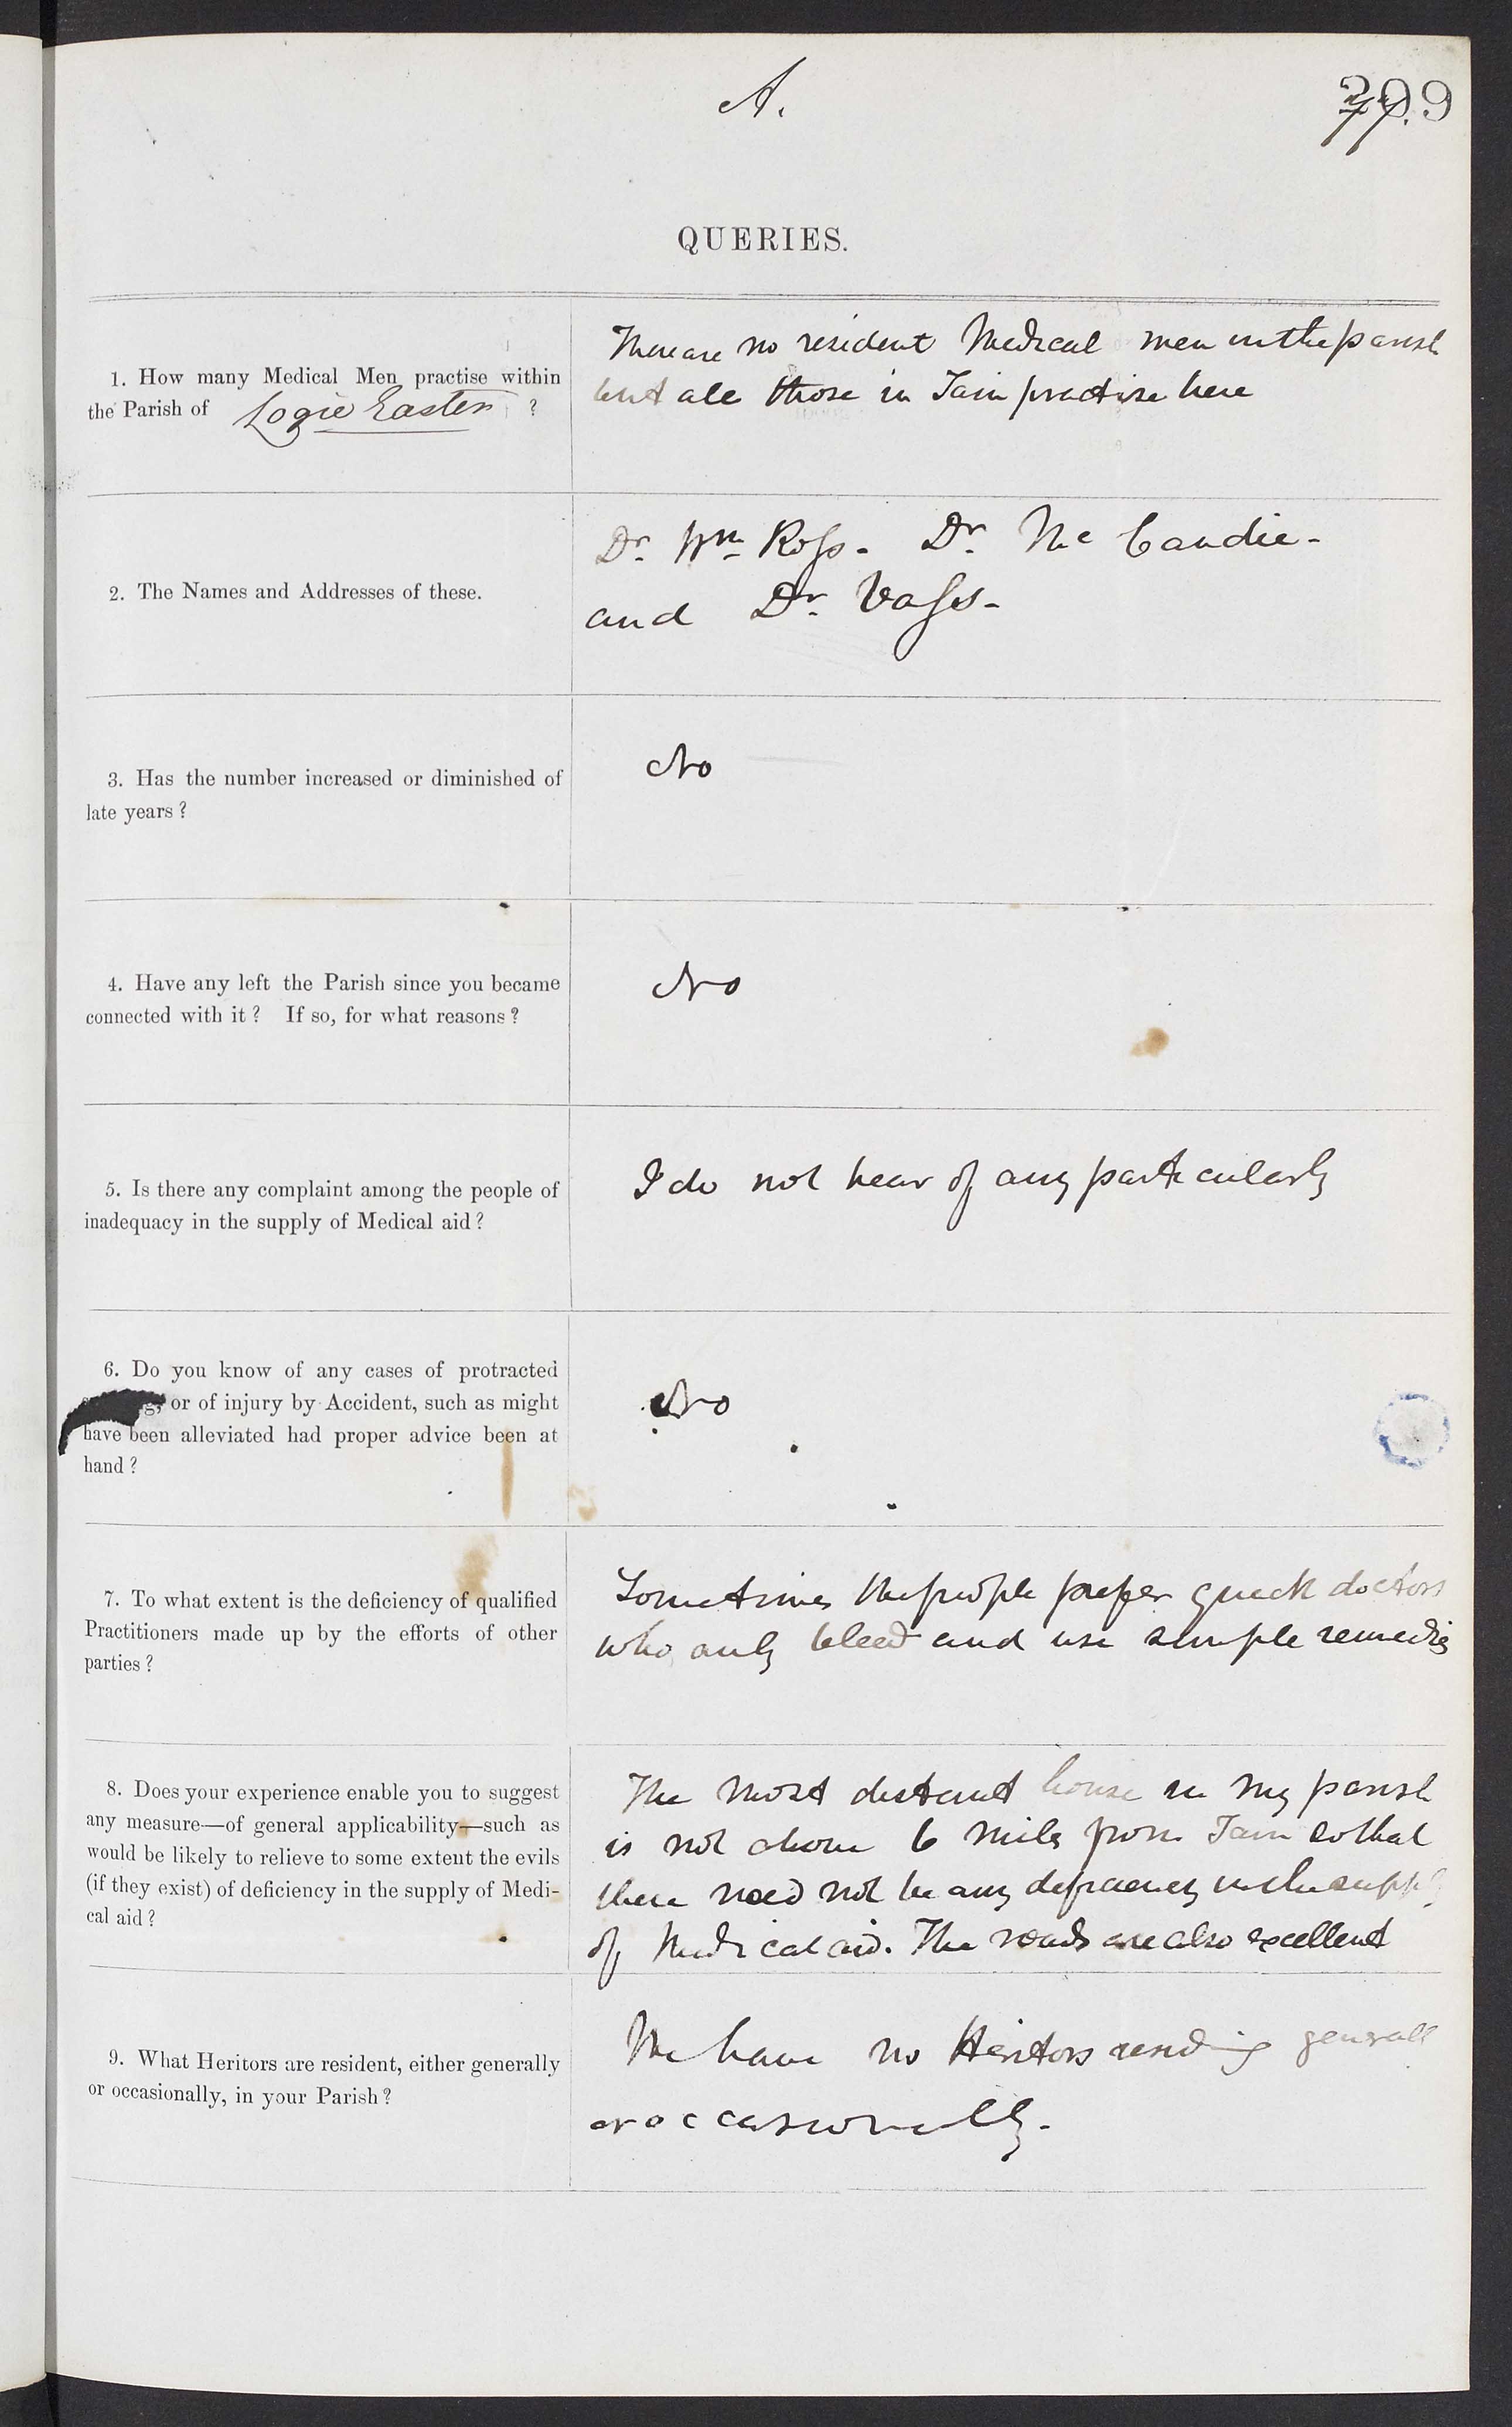 A.
299
77.
QUERIES.
1. How many Medical Men practise within
the Parish of Logie Easter ?
There are no resident Medical men in the parish
but all those in Tain practise here
2. The Names and Addresses of these.
Dr. Wm Ross - Dr. McCandie -
and Dr. Vass -
3. Has the number increased or diminished of
late years ?
No
4. Have any left the Parish since you became
connected with it ? If so, for what reasons ?
No
5. Is there any complaint among the people of
inadequacy in the supply of Medical aid ?
I do not hear of any particularly
6. Do you know of any cases of protracted
or of injury by Accident, such as might
have been alleviated had proper advice been at
hand ?
No
7. To what extent is the deficiency of qualified
Practitioners made up by the efforts of other
parties ?
Sometimes the people prefer quack doctors
who only bleed and use simple remedies
8. Does your experience enable you to suggest
any measure—of general applicability—such as
would be likely to relieve to some extent the evils
(if they exist) of deficiency in the supply of Medi-
cal aid ?
The most distant house in my parish
is not above 6 miles from Tain so that
there need not be any deficiency in the supply
of Medical aid. The roads are also excellent
9. What Heritors are resident, either generally
or occasionally, in your Parish ?
We have no Heritors residing generall
or occasionally -